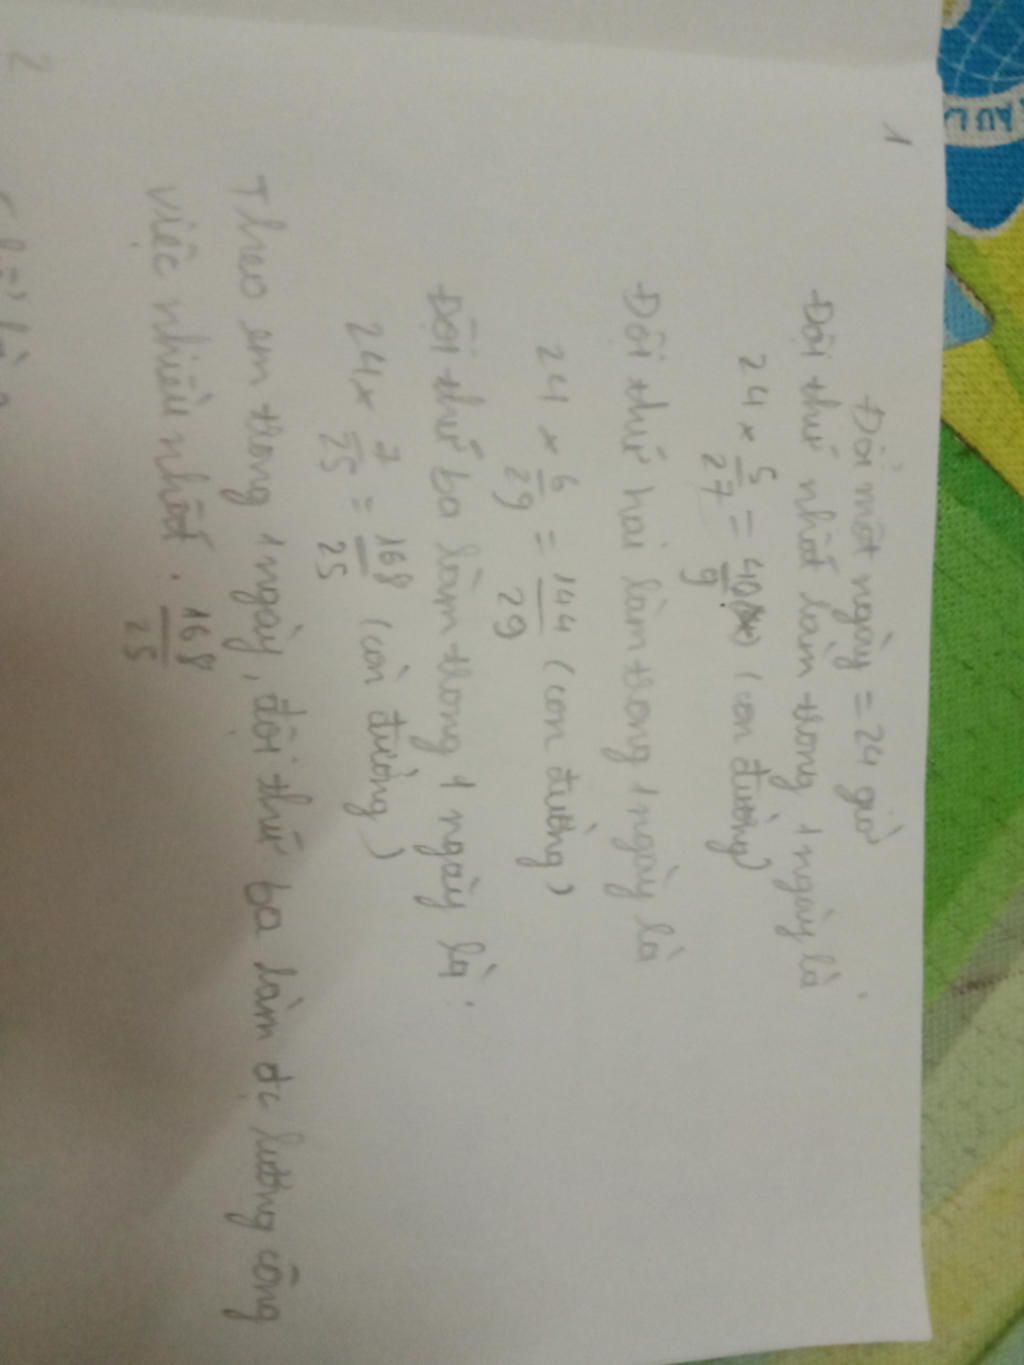 1
Đổi một ngày = 24 giờ
Đội thứ nhất làm trong 1 ngày là
24 x 5/27 = 40/9 (con đường)
Đội thứ hai làm trong 1 ngày là
24 x 6/29 = 144/29 (con đường)
Đội thứ ba làm trong 1 ngày là:
24 x 7/25 = 168/25 (con đường)
Theo em trong 1 ngày, đội thứ ba làm đc lường công
việc nhiều nhất. 168/25
2